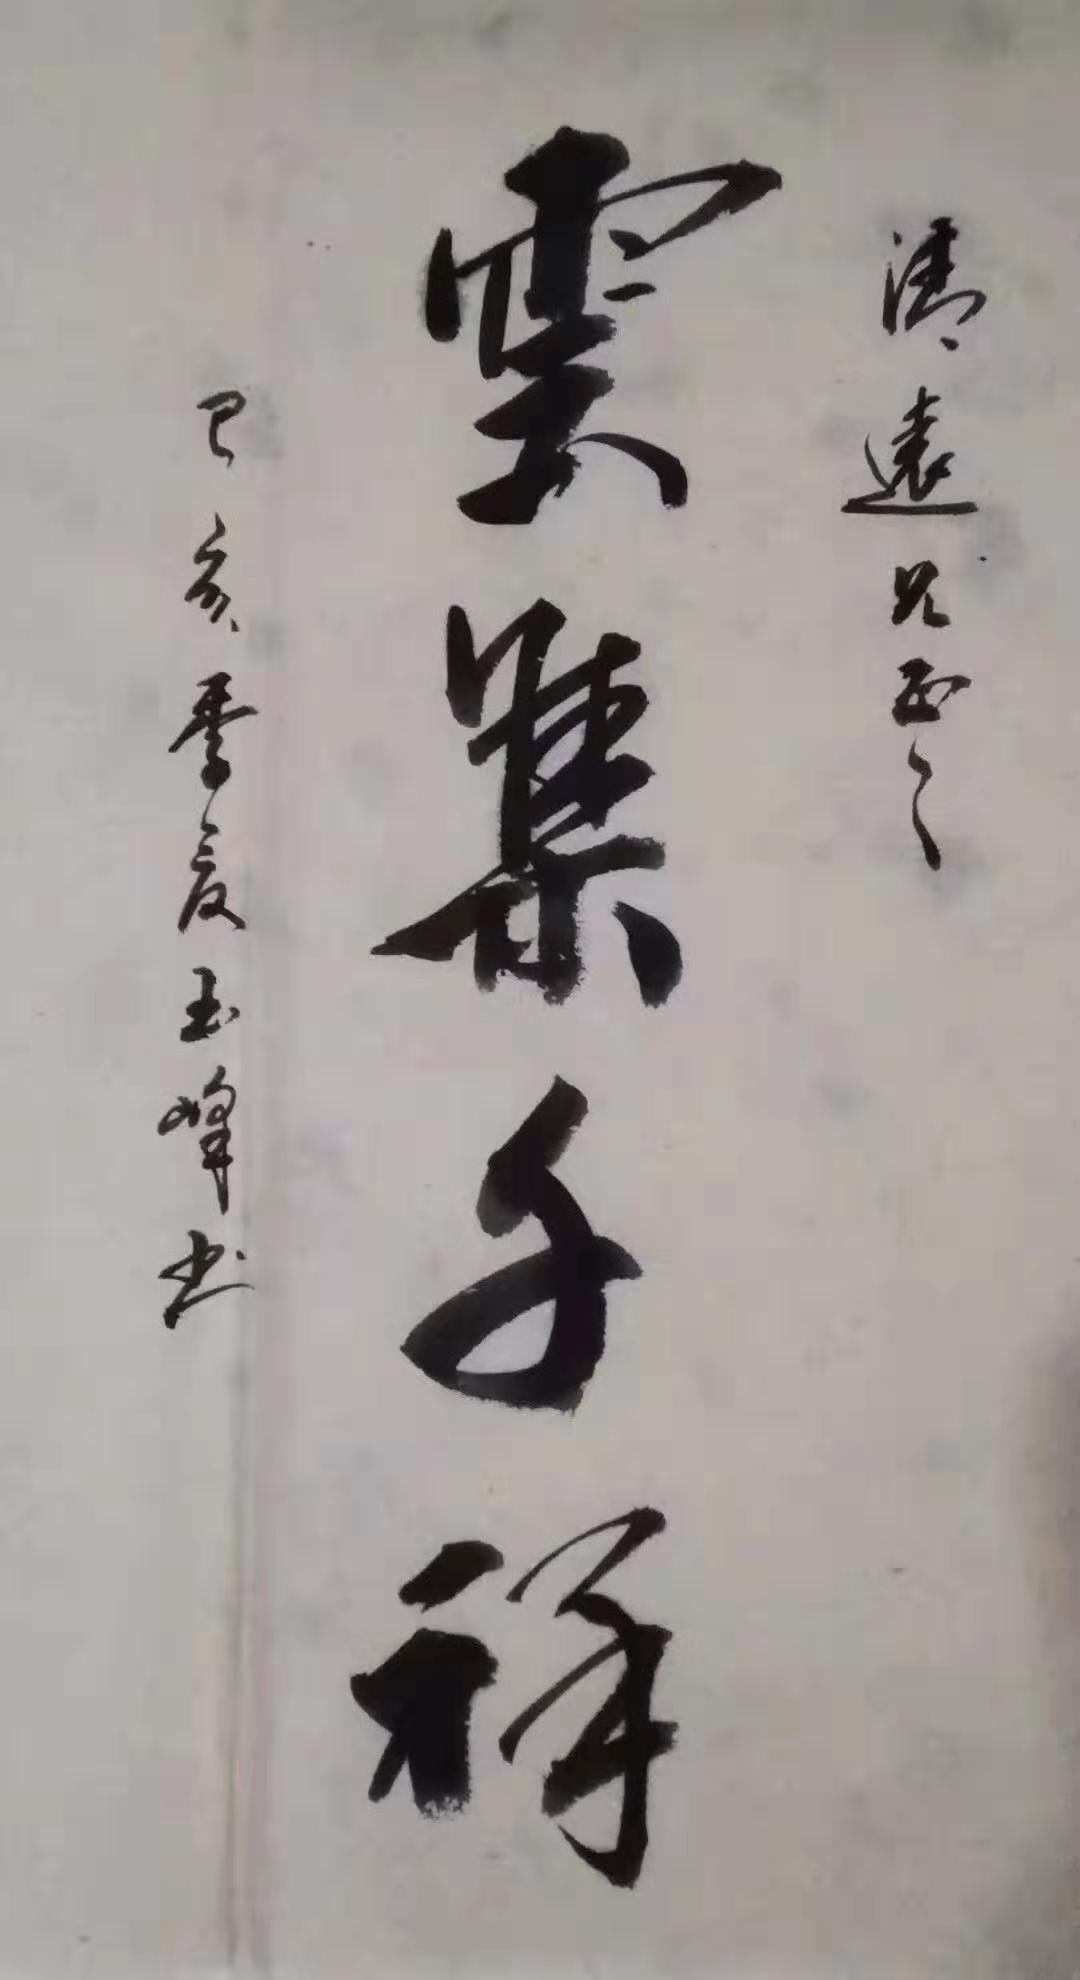 清遠兄正之
雲集千祥
己亥季夏玉峰书